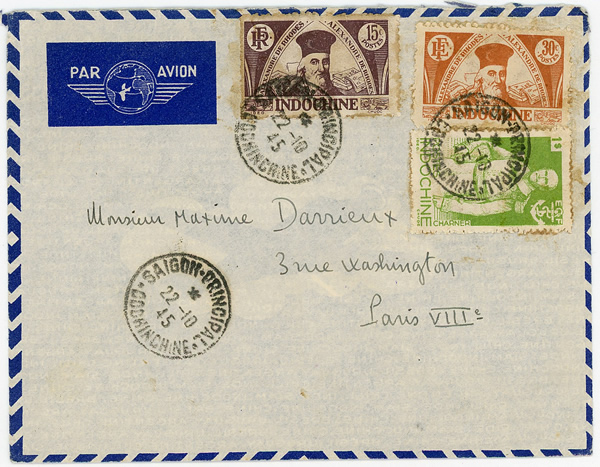 PAR AVION
RF 15c
ALEXANDRE DE RHODES
POSTES
INDOCHINE
RF 30c
ALEXANDRE DE RHODES
POSTES
SAIGON-PRINCIPAL
*
22-10
45
COCHINCHINE
SAIGON-PRINCIPAL
*
22-10
45
COCHINCHINE
INDOCHINE
CHARNER
Monsieur Maxime Darrieux
3 rue Washington
Paris VIIIe
SAIGON-PRINCIPAL
*
22-10
45
COCHINCHINE